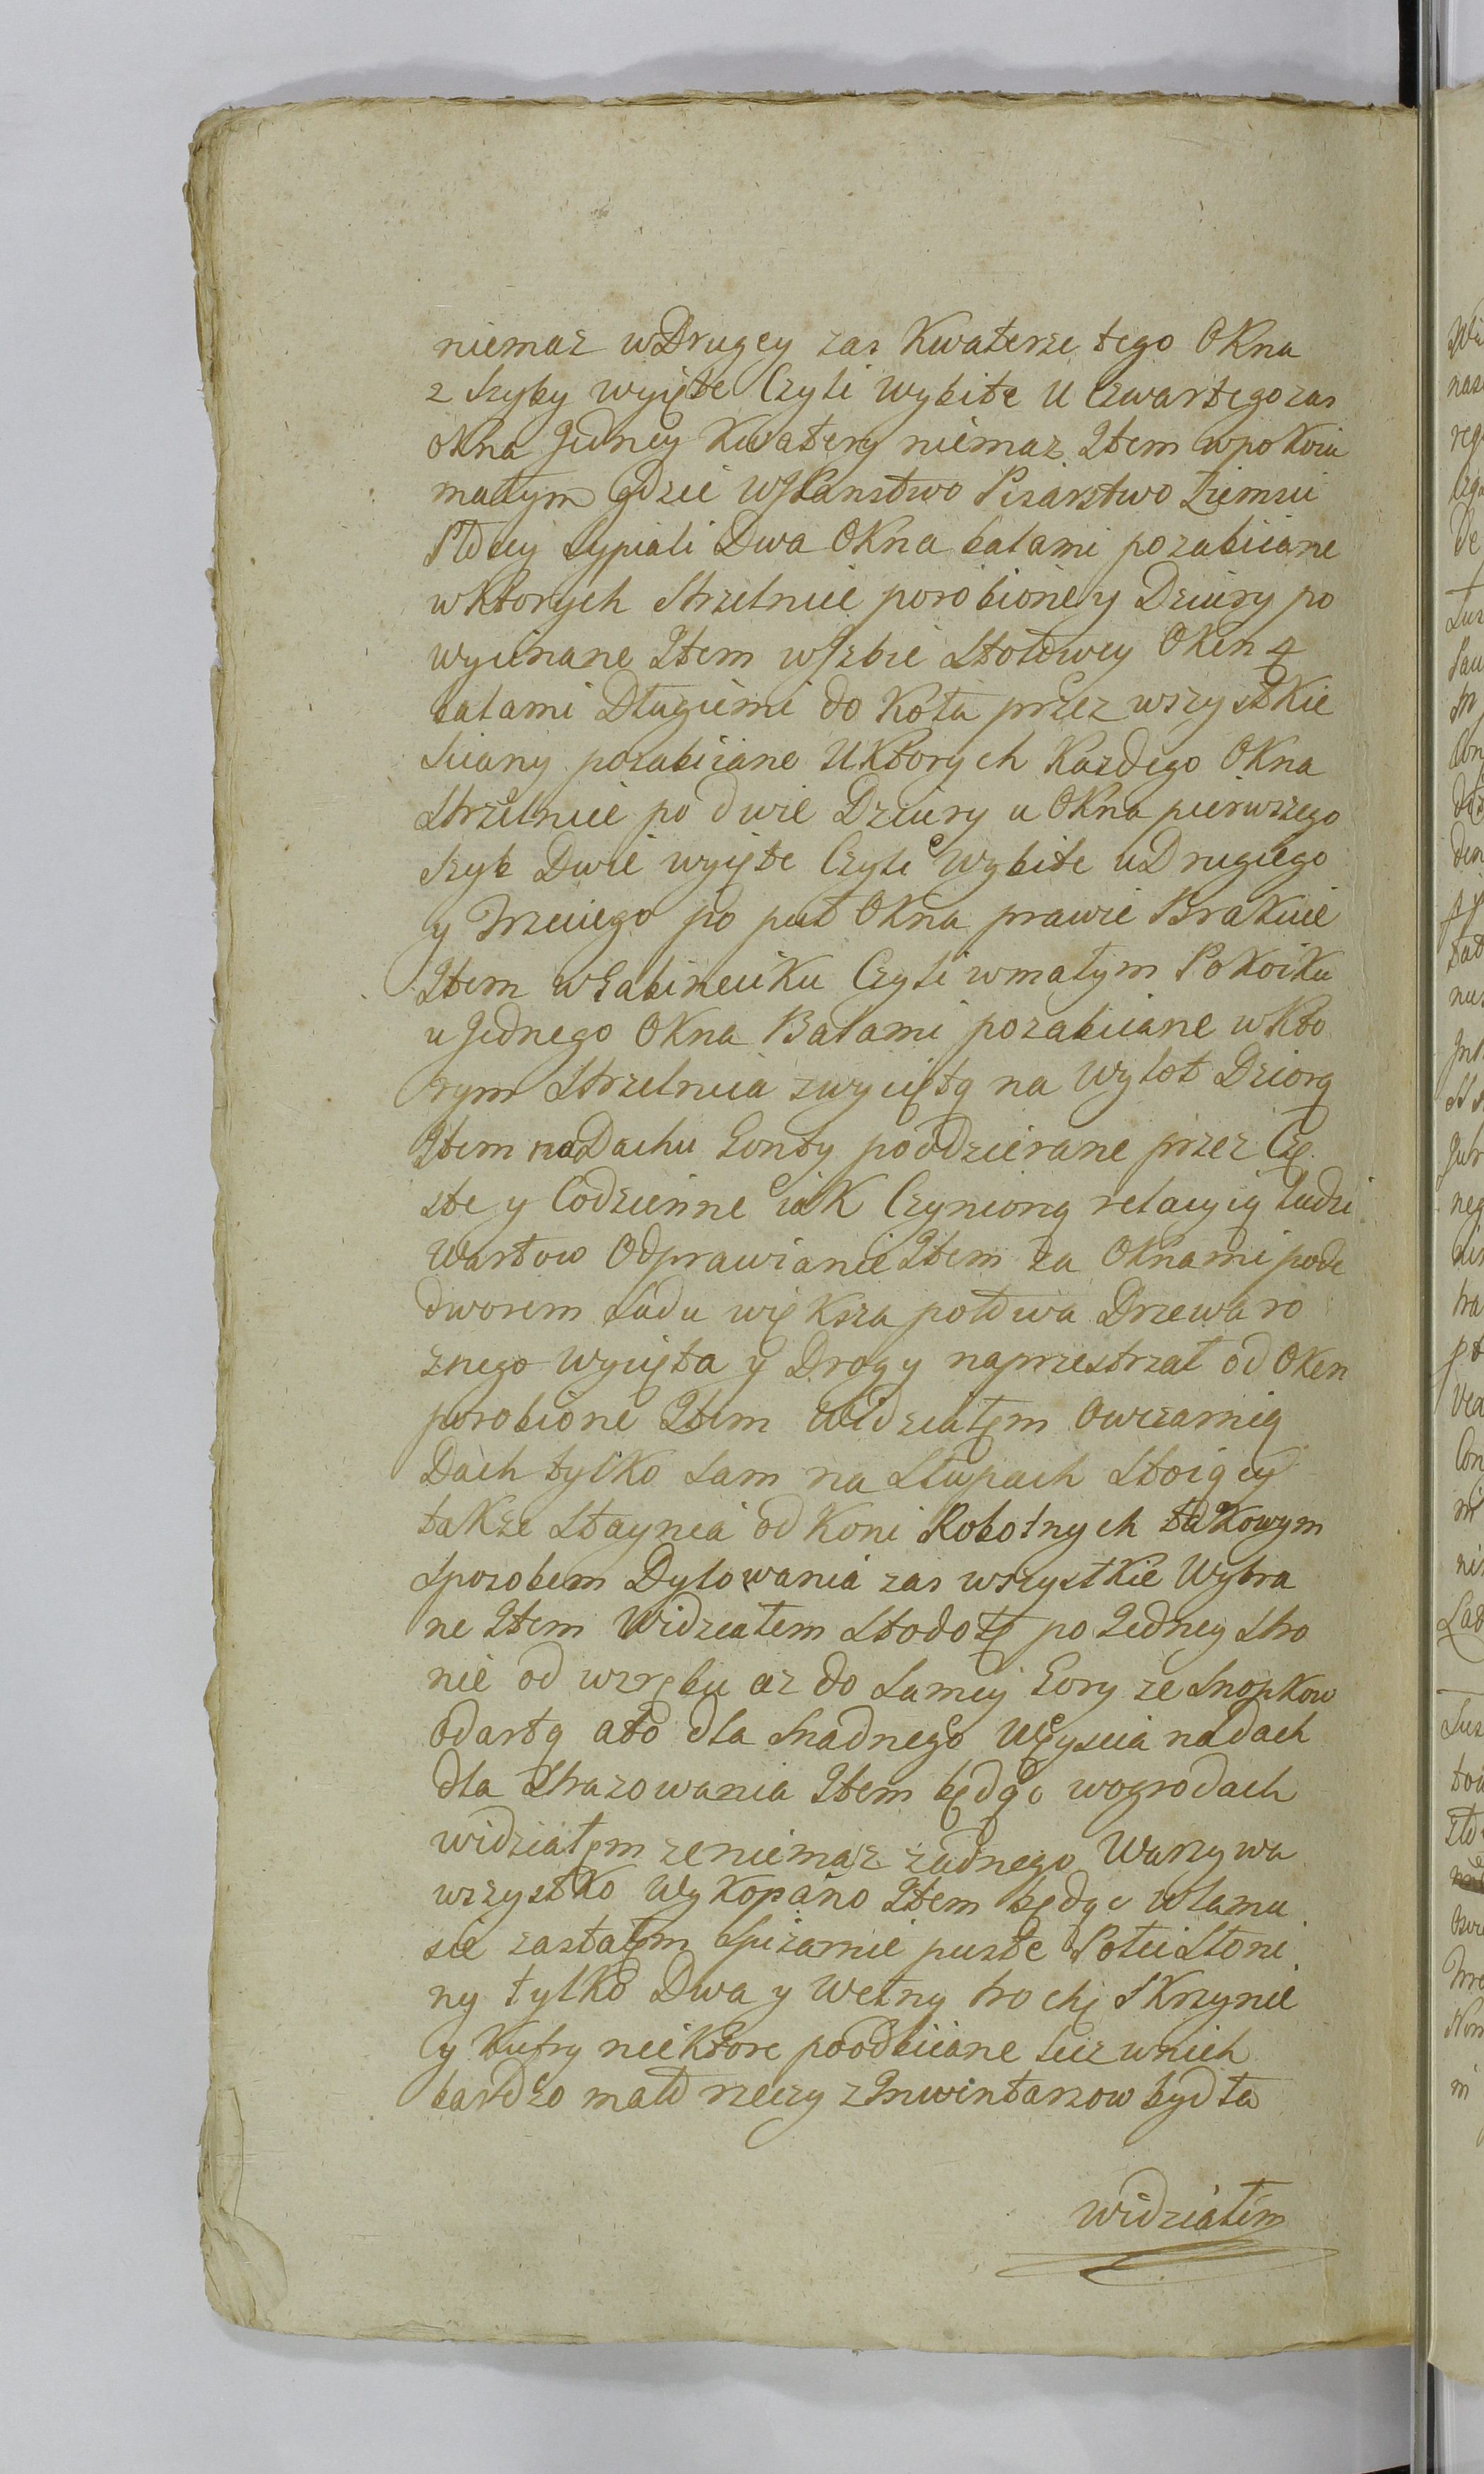 niemasz w Drugey zas Kwaterze tego Okna
2 Szyby wyięte Czyli wybite U Czwartego zas
okna Jedney Kwatery niemasz Item w pokoiu
małym gdzie WJPanstwo Pisarstwo Ziemscii
sypiali Dwa Okna balami pozabiiane
w ktorych Strzelnice porobione y Dziury po
wycinane Item w Jzbie Stołowey Oken 4
balami Długiemi do koła przez wszystkie
sciany pozabiiane U ktorych Kazdego Okna
Strzelnice po dwie Dziury u Okna pierwszego
Szyb Dwie wyięte Czyli Wybite u Drugiego
y Trzeciego po puł Okna prawie Brakuie
Item w Gabineciku Czyli w małym Pokoiku
u Jednego Okna Balami pozabiiane w kto
rym Strzelnica z wyciętą na wylot Dziorą
Item na Dachu Gonty poddzierane przez Czę
ste y Codzienne iak Czynioną relacyią ludzi
Wartow Odprawianie Item za Oknami pode
dworem Sadu większa połowa Drzewa ro
znego wycięta y Drogy na przestrzał od Oken
porobione Item Widziałem Owczarnią
Dach tylko sam na Słupach Stoiący
takze Staynia od Koni Robotnych takowym
Sposobem Dylowania zas wszystkie Wybra
ne Item Widziałem Stodołę po Jedney stro
nie od wzrębu az do samey Gory ze Snopkow
Odartą a to dla snadnego Węyscia na dach
dla Strazowania Item będąc w ogrodach
widziałem ze niemasz zadnego Warzywa
wszystko Wykopano Item będąc w lamu
sie zastałem Spizarnie puste Połci Słoni
ny tylko Dwa y Wełny trochę Skrzynie
y Kufry niektore poodbiiane lecz w nich
bardzo mało rzeczy z Jnwintarzow bydła
widziałem